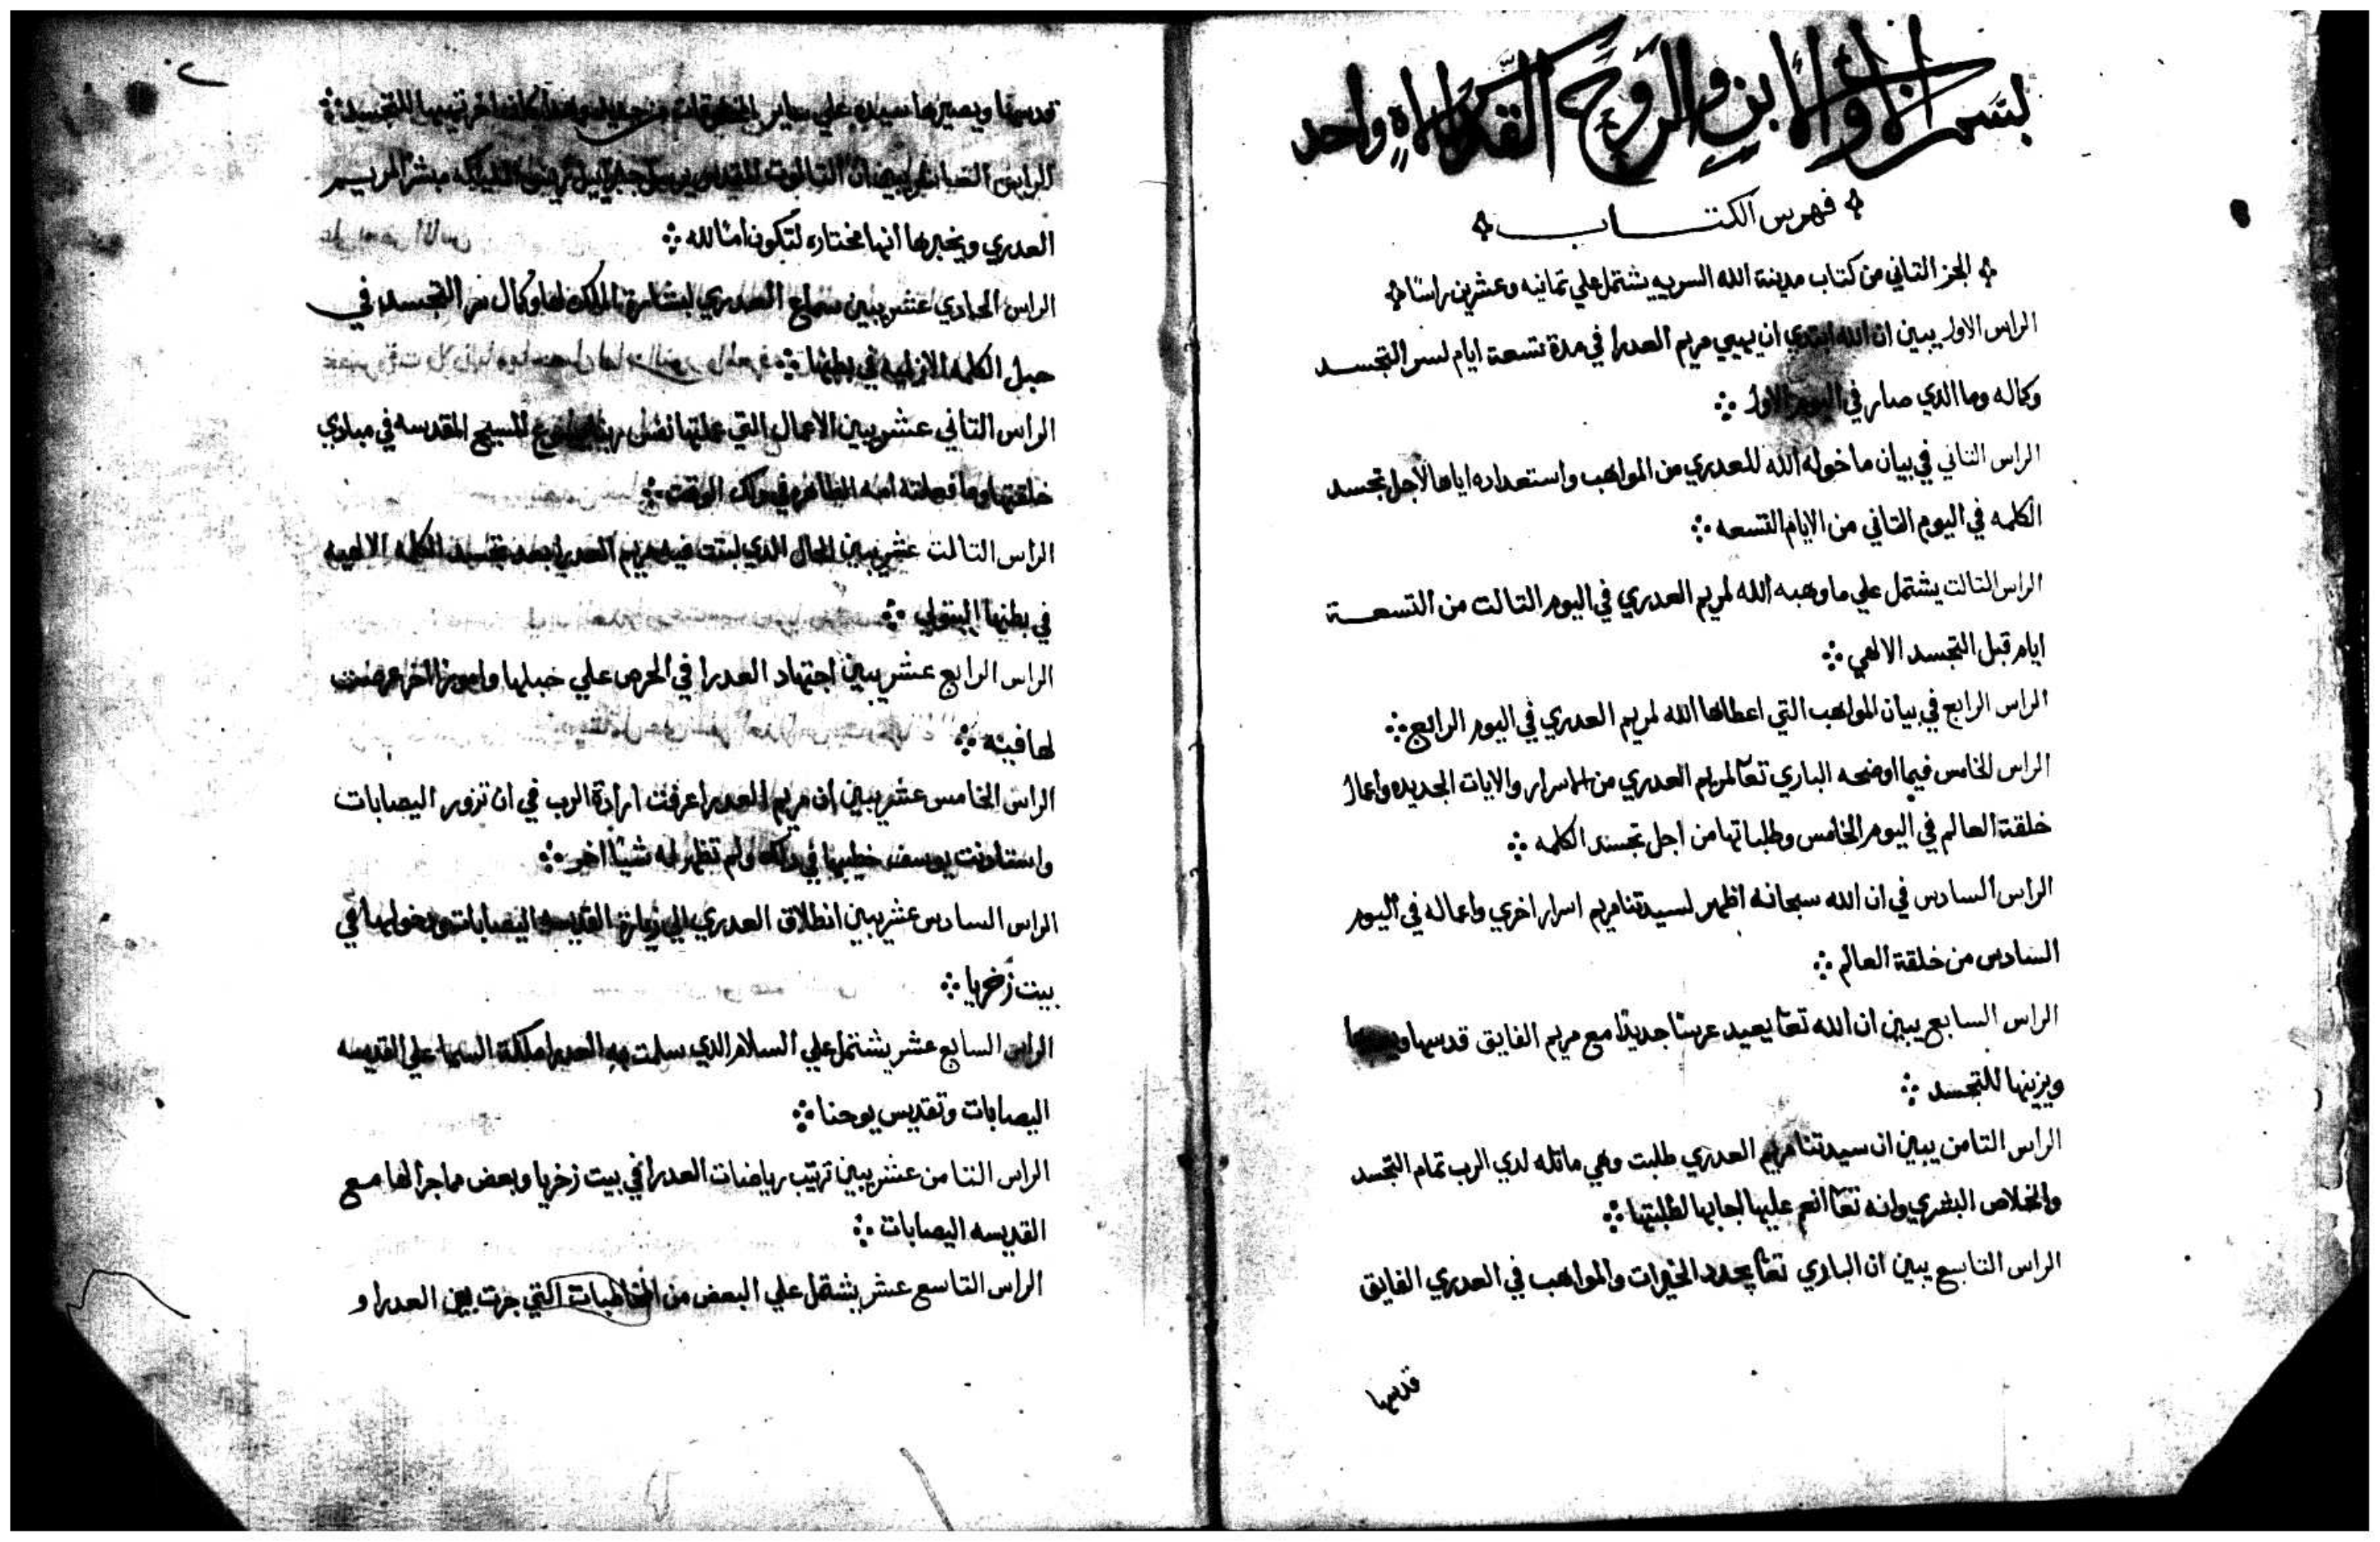 بسم الاب والابن والروح القدس الاه واحد
فهرس الكتاب
الجز التاني من كتاب مدينة الله السرييه يشتمل علي تمانيه وعشرين راسًا
الراس الاول يبين ان الله ابتدي ان يهيي مريم العدرا في مدة تسعة ايام لسر التجسد
وكماله وما الدي صار في اليوم الاول
الراس التاني في بيان ما خوله الله للعدري من المواهب واستعداده اياها لاجل تجسد
الكلمه في اليوم التاني من الايام التسعه
الراس التالت يشتمل علي ما وهبه الله لمريم العدري في اليوم التالت من التسعة
ايام قبل التجسد الالهي
الراس الرابع في بيان المواهب التي اعطاها الله لمريم العدري في اليوم الرابع
الراس الخامس فيما اوضحه الباري تعا لمريم العدري من الاسرار والايات الجديده واعمال
خلقة العالم في اليوم الخامس وطلباتها من اجل تجسد الكلمه
الراس السادس في ان الله سبحانه اظهر لسيدتنا مريم اسرار اخري واعماله في اليوم
السادس من خلقة العالم
الراس السابع يبين ان الله تعا يعيد عرسًا جديدًا مع مريم الفايق قدسها
ويزينها للتجسد
الراس التامن يبين ان سيدتنا مريم العدري طلبت وهي ماتله لدي الرب تمام التجسد
والخلاص البشري وانه تعا انعم عليها لطلبتها
الراس التاسع يبين ان الباري تعا يجدد الخيرات والمواهب في العدري الفايق
قدسها
قدسها ويصيرها سيده علي ساير المخلوقات من جديد
الراس العاشر يبين ان التالوت القدوس يرسل جبراييل مبشرًا لمريم
العدري ويخبرها انها مختاره لتكون امًا لله
الراس الحادي عشر يبين سماع العدري لبشارة الملاك لها وكمال سر التجسد في
حبل الكلمه الازليه في بطنها
الراس التاني عشر يبين الاعمال التي عملتها نفس ربنا يسوع المسيح المقدسه في مبادي
خلقتها وما فعلته امه الطاهره في داك الوقت
الراس التالت عشر يبين الحال الدي لبتت فيه مريم العدرا بعد تجسد الكلمه الالهيه
في بطنها البتولي
الراس الرابع عشر يبين اجتهاد العدرا في الحرص علي حبلها وامورًا اخر عرضت
لها فيه
الراس الخامس عشر يبين ان مريم العدرا عرفت ارادة الرب في ان تزور اليصابات
واستادنت يوسف خطيبها في دلك ولم تظهر له شيًا اخر
الراس السادس عشر يبين انطلاق العدري الي زيارة القديسه اليصابات ودخولها في
بيت زخريا
الراس السابع عشر يشتمل علي السلام الدي سلمت به العدرا ملكة السما علي القديسه
اليصابات وتقديس يوحنا
الراس التامن عشر يبين ترتيب رياضات العدرا في بيت زخريا وبعض ما جرا لها مع
القديسه اليصابات
الراس التاسع عشر يشتمل علي البعض من المخاطبات التي جرت بين العدرا و